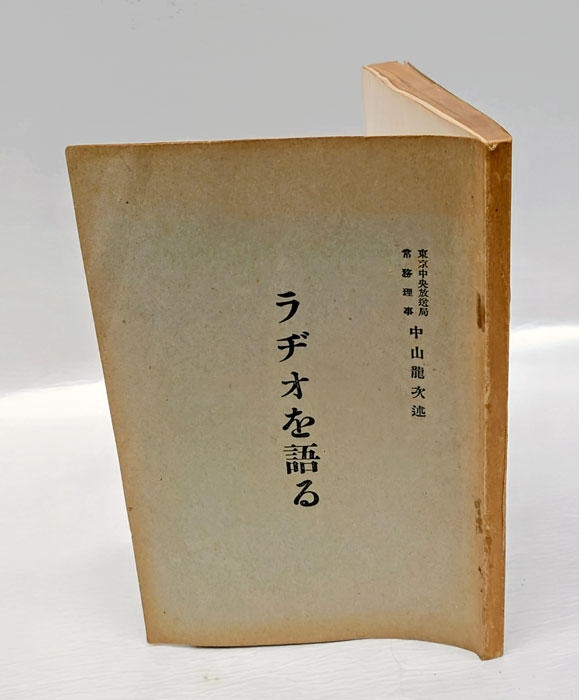 東京中央放送局
常務理事
中山龍次述
ラヂオを語る